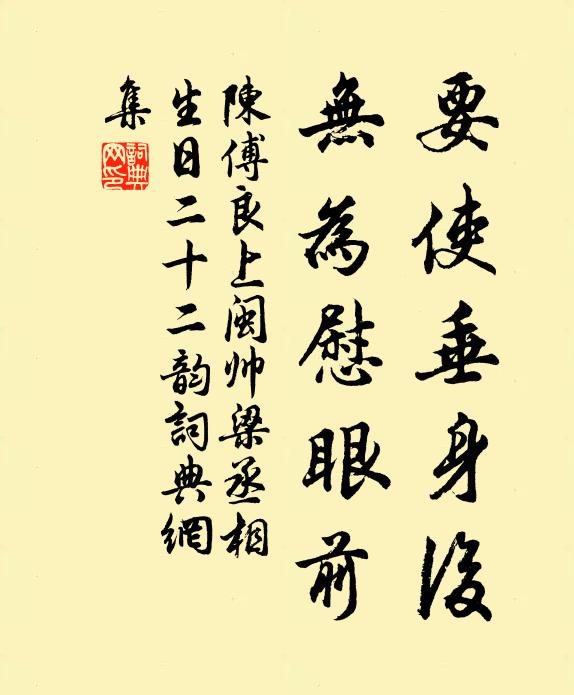 要使垂身後
無為慰眼前
陳傅良上閩帅梁丞相
生日二十二韵詞典網
集
詞典
网印